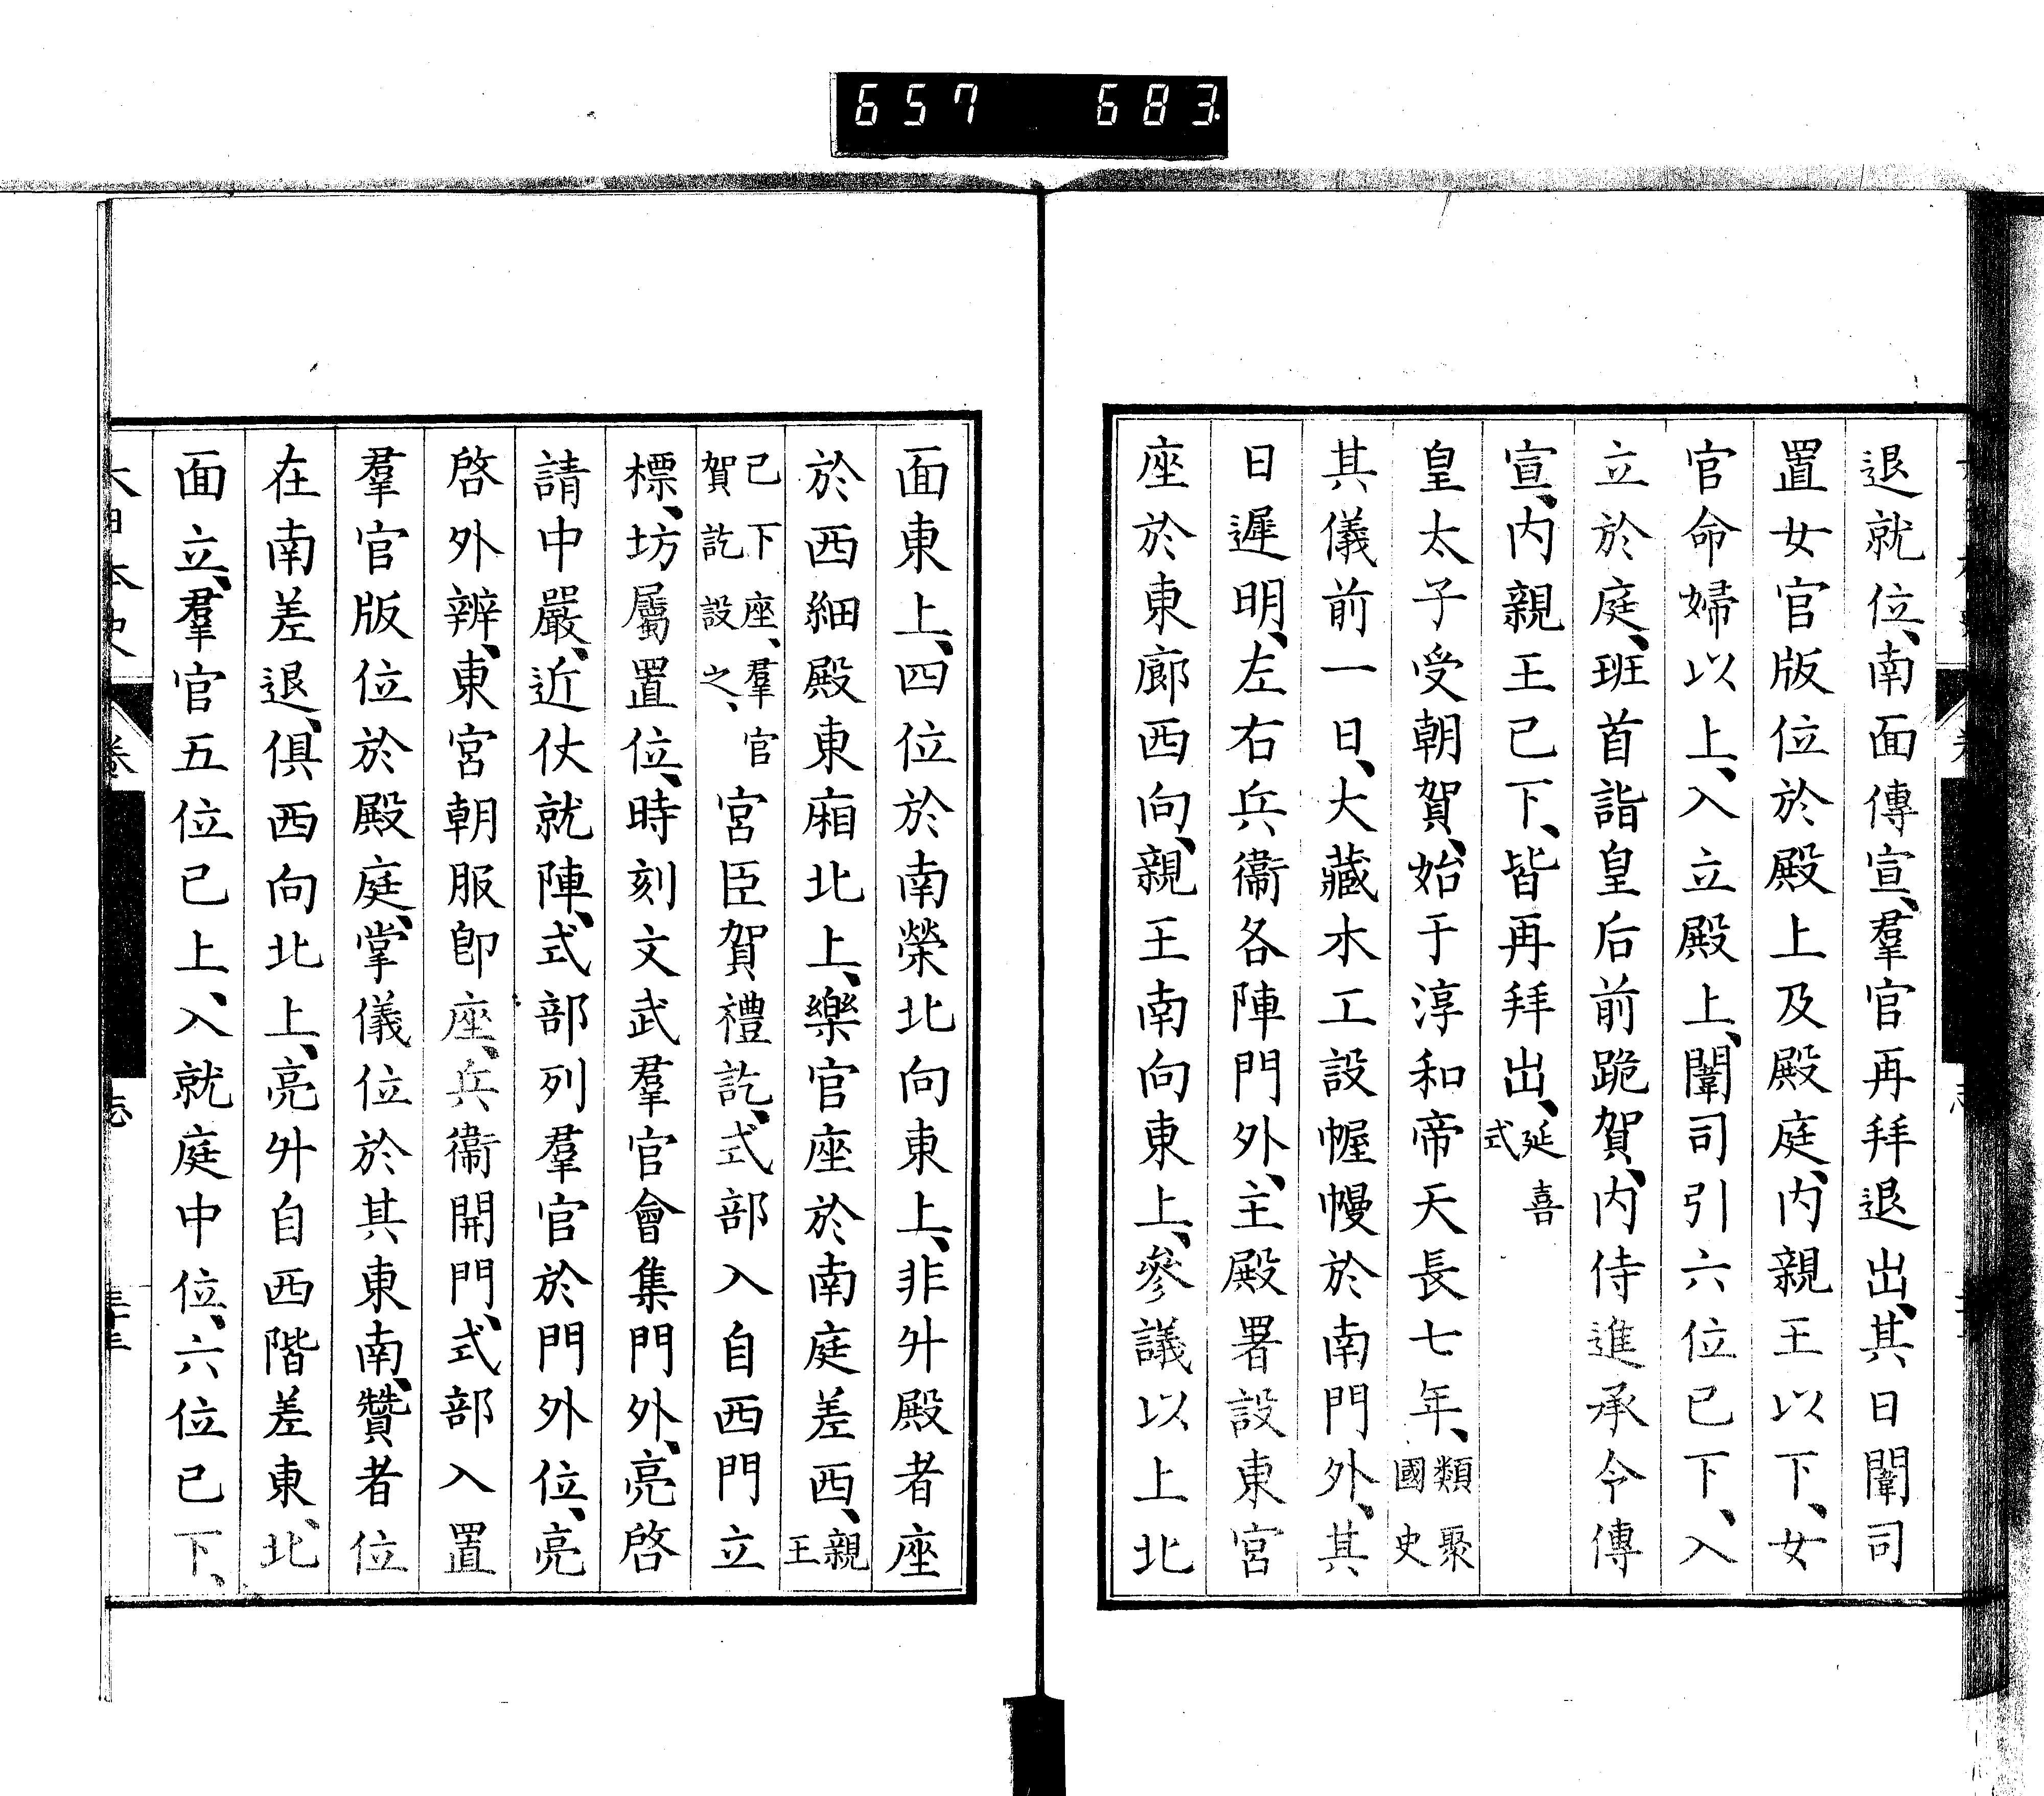 657 683
退就位、南面傳宣、羣官再拜退出、其日闈司
置女官版位於殿上及殿庭、内親王以下、女
官命婦以上、入立殿上、闈司引六位已下、入
立於庭、班首詣皇后前跪賀、内侍進承令傳
宣、内親王已下、皆再拜出、延喜式
皇太子受朝賀、始于淳和帝天長七年、類聚國史
其儀前一日、大藏木工設幄幔於南門外、其
日遲明、左右兵衞各陣門外、主殿署設東宮
座於東廊西向、親王南向東上、參議以上北
面東上、四位於南榮北向東上、非升殿者座
於西細殿東廂北上、樂官座於南庭差西、親王
已下座、羣官賀訖設之、宮臣賀禮訖、式部入自西門立
標、坊屬置位、時刻文武羣官會集門外、亮啓
請中嚴、近仗就陣、式部列羣官於門外位、亮
啓外辨、東宮朝服卽座、兵衞開門、式部入置
羣官版位於殿庭、掌儀位於其東南、贊者位
在南差退、俱西向北上、亮升自西階差東、北
面立、羣官五位已上、入就庭中位、六位已下、
大日本史 卷 志